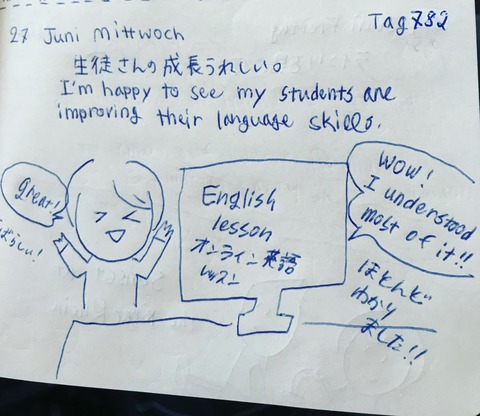 27 Juni Mittwoch
Tag 782
生徒さんの成長うれしい。
I'm happy to see my students are
improving their language skills.
great!
ばらしい!
English
lesson
オンライン英語
レッスン
WOW!
I understood
most of it!!
ほとんど
わかり
ました!!